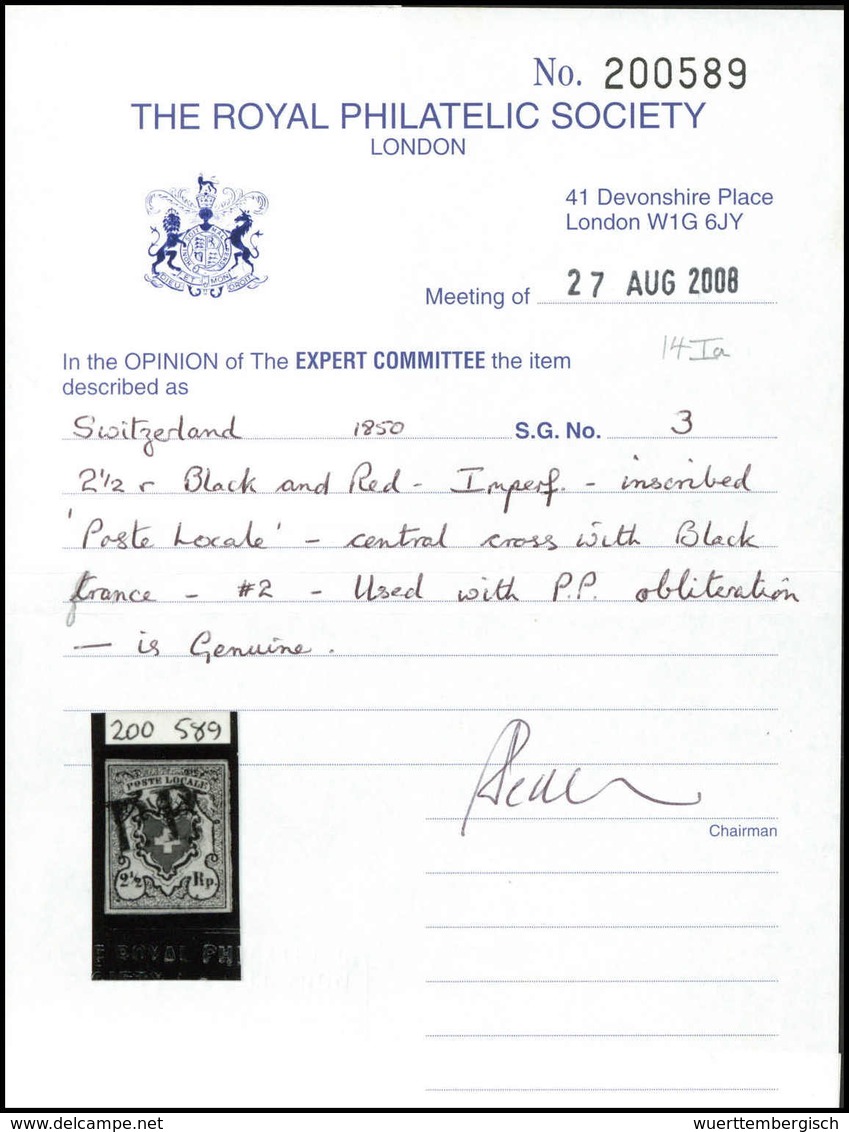 No. 200589
THE ROYAL PHILATELIC SOCIETY
LONDON
41 Devonshire Place
London W1G 6JY
Meeting of 27 AUG 2008
14 Ia
In the OPINION of The EXPERT COMMITTEE the item
described as
Switzerland 1850 S.G. No. 3
2½ r Black and Red - Imperf. - inscribed
'Poste Locale' - central cross with Black
frame - #2 - Used with P.P. obliteration
— is Genuine.
200 589
POSTE LOCALE
P.P.
2½ Rp.
E ROYAL PHI
Chairman
www.delcampe.net
wuerttembergisch